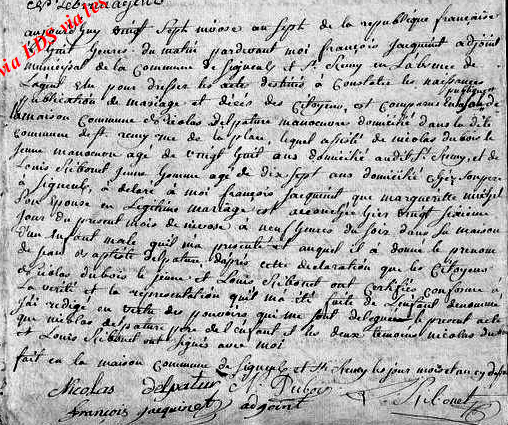 aujourdhuy vingt Sept nivose an Sept de la republique française
a huit heures du matin pardevant moi françois Jacquinet adjoint
municipal de la Commune de Signeuls et St Remy en l'absence de
L'agent Elu pour dresser les actes destinés à Constater les naissances
publication de mariage et décès des Citoyens, est comparu en la Salle publique
de la maison Commune Nicolas delpature manoeuvre domicilié dans le dite
commune de St remy que de la place, lequel assisté de nicolas dubois le
jeune manoeuvre agé de vingt huit ans domicilié audit St Remy, et de
Louis Ribonet jeune homme agé de dix sept ans domicilié chez son pere
à Signeuls, a déclaré à moi françois Jacquinet que margueritte michel
Son Epouse en Légitime mariage est accouchée hier vingt Sixieme
jour du present mois de nivose à neuf heures du soir dans sa maison
d'un Enfant male quil ma presenté et auquel il à donné le prenom
de jean Baptiste delpature, d'après cette déclaration que les Citoyens
Nicolas dubois le jeune et Louis Ribonet ont Certifiée conforme à
La verité et la representation qu'il ma été faite de L'enfant denommé
j'ai redigé en vertu des pouvoirs qui me sont delegués le present acte
que nicolas delpature pere de l'enfant et les deux temoins nicolas du
et Louis Ribonet ont signés avec moi
fait en la maison commune de Signeuls et St Remy les jour mois et an cy
Nicolas delpature N Dubois L Ribonet
françois jacquinet adjoint
via EDS via les